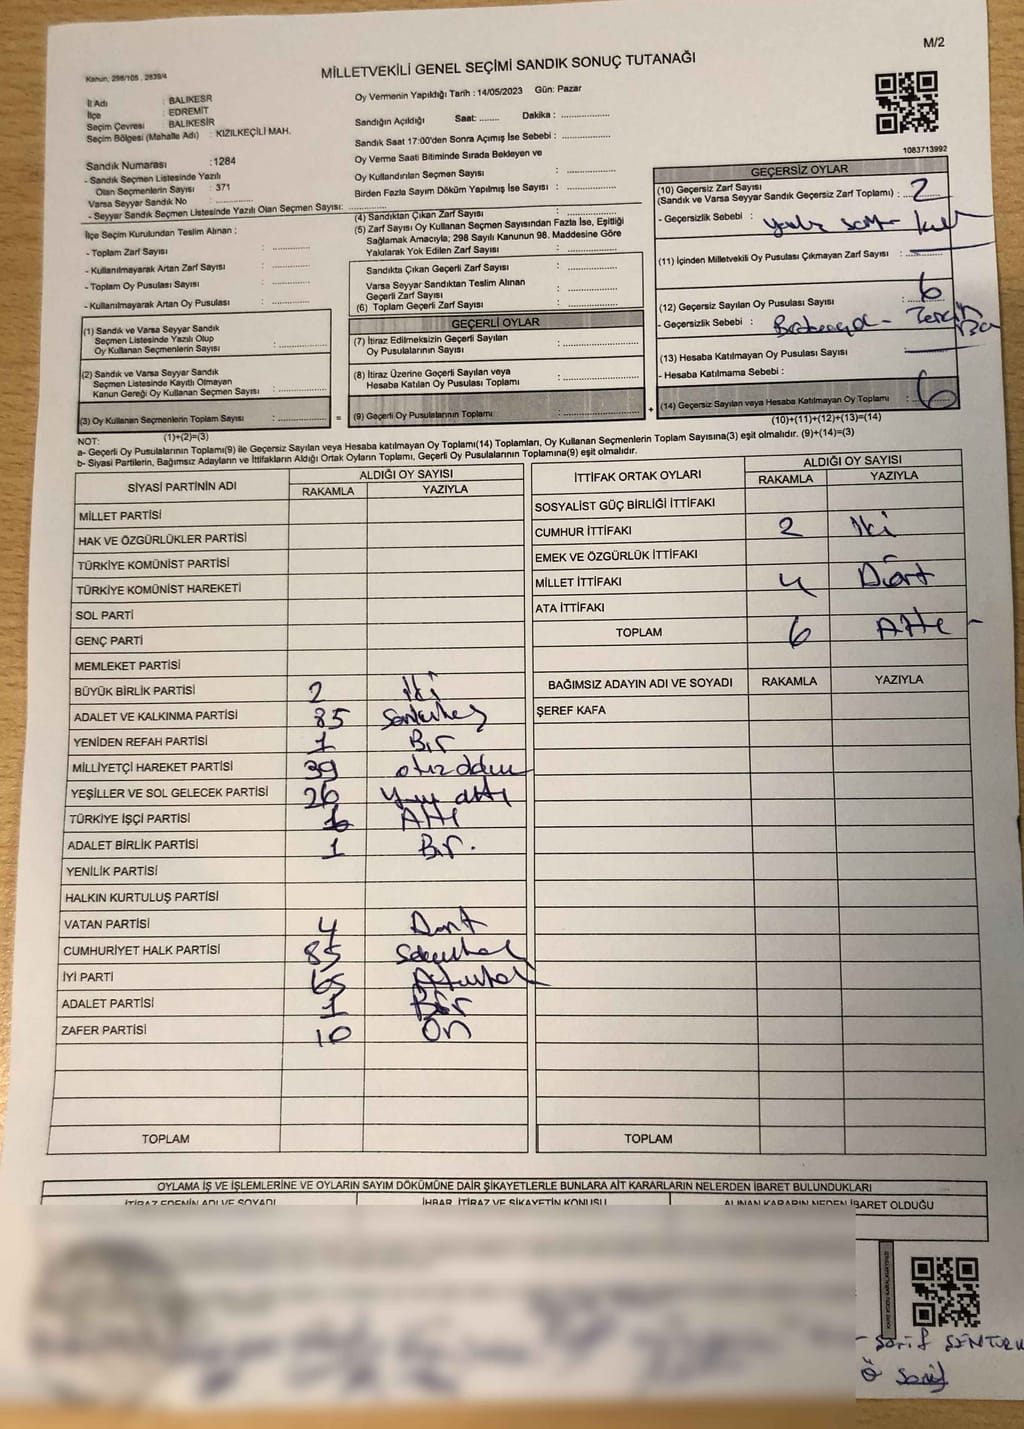 M/2
Kanun, 298/105 , 2839/4
MİLLETVEKİLİ GENEL SEÇİMİ SANDIK SONUÇ TUTANAĞI
İl Adı : BALIKESR
İlçe : EDREMİT
Seçim Çevresi : BALIKESİR
Seçim Bölgesi (Mahalle Adı) : KIZILKEÇİLİ MAH.
Sandık Numarası : 1284
- Sandık Seçmen Listesinde Yazılı
Olan Seçmenlerin Sayısı : 371
Varsa Seyyar Sandık No
- Seyyar Sandık Seçmen Listesinde Yazılı Olan Seçmen Sayısı:
Oy Vermenin Yapıldığı Tarih : 14/05/2023 Gün: Pazar
Sandığın Açıldığı Saat: ........ Dakika : ..............
Sandık Saat 17:00'den Sonra Açımış İse Sebebi : ..............
Oy Verme Saati Bitiminde Sırada Bekleyen ve
Oy Kullandırılan Seçmen Sayısı : ..............
Birden Fazla Sayım Döküm Yapılmış İse Sayısı : ..............
1083713992
İlçe Seçim Kurulundan Teslim Alınan ;
- Toplam Zarf Sayısı : ..............
- Kullanılmayarak Artan Zarf Sayısı : ..............
- Toplam Oy Pusulası Sayısı : ..............
- Kullanılmayarak Artan Oy Pusulası : ..............
(1) Sandık ve Varsa Seyyar Sandık
Seçmen Listesinde Yazılı Olup
Oy Kullanan Seçmenlerin Sayısı : ..............
(2) Sandık ve Varsa Seyyar Sandık
Seçmen Listesinde Kayıtlı Olmayan
Kanun Gereği Oy Kullanan Seçmen Sayısı : ..............
(3) Oy Kullanan Seçmenlerin Toplam Sayısı : ..............
(1)+(2)=(3)
(4) Sandıktan Çıkan Zarf Sayısı : ..............
(5) Zarf Sayısı Oy Kullanan Seçmen Sayısından Fazla İse, Eşitliği
Sağlamak Amacıyla; 298 Sayılı Kanunun 98. Maddesine Göre
Yakılarak Yok Edilen Zarf Sayısı : ..............
Sandıkta Çıkan Geçerli Zarf Sayısı : ..............
Varsa Seyyar Sandıktan Teslim Alınan
Geçerli Zarf Sayısı : ..............
(6) Toplam Geçerli Zarf Sayısı : ..............
GEÇERLİ OYLAR
(7) İtiraz Edilmeksizin Geçerli Sayılan
Oy Pusulalarının Sayısı : ..............
(8) İtiraz Üzerine Geçerli Sayılan veya
Hesaba Katılan Oy Pusulası Toplamı : ..............
= (9) Geçerli Oy Pusulalarının Toplamı : ..............
GEÇERSİZ OYLAR
(10) Geçersiz Zarf Sayısı
(Sandık ve Varsa Seyyar Sandık Geçersiz Zarf Toplamı) : 2
- Geçersizlik Sebebi :
(11) İçinden Milletvekili Oy Pusulası Çıkmayan Zarf Sayısı :
(12) Geçersiz Sayılan Oy Pusulası Sayısı : 6
- Geçersizlik Sebebi :
(13) Hesaba Katılmayan Oy Pusulası Sayısı
- Hesaba Katılmama Sebebi :
+ (14) Geçersiz Sayılan veya Hesaba Katılmayan Oy Toplamı : 6
(10)+(11)+(12)+(13)=(14)
NOT:
a- Geçerli Oy Pusulalarının Toplamı(9) ile Geçersiz Sayılan veya Hesaba katılmayan Oy Toplamı(14) Toplamları, Oy Kullanan Seçmenlerin Toplam Sayısına(3) eşit olmalıdır. (9)+(14)=(3)
b- Siyasi Partilerin, Bağımsız Adayların ve İttifakların Aldığı Ortak Oyların Toplamı, Geçerli Oy Pusulalarının Toplamına(9) eşit olmalıdır.
SİYASİ PARTİNİN ADI ALDIĞI OY SAYISI
RAKAMLA YAZIYLA
MİLLET PARTİSİ
HAK VE ÖZGÜRLÜKLER PARTİSİ
TÜRKİYE KOMÜNİST PARTİSİ
TÜRKİYE KOMÜNİST HAREKETİ
SOL PARTİ
GENÇ PARTİ
MEMLEKET PARTİSİ
BÜYÜK BİRLİK PARTİSİ 2 iki
ADALET VE KALKINMA PARTİSİ 85
YENİDEN REFAH PARTİSİ 1 Bir
MİLLİYETÇİ HAREKET PARTİSİ 39
YEŞİLLER VE SOL GELECEK PARTİSİ 26
TÜRKİYE İŞÇİ PARTİSİ 6 Altı
ADALET BİRLİK PARTİSİ 1 Bir.
YENİLİK PARTİSİ
HALKIN KURTULUŞ PARTİSİ
VATAN PARTİSİ 4 Dört
CUMHURİYET HALK PARTİSİ 85
İYİ PARTİ 65
ADALET PARTİSİ 1 Bir
ZAFER PARTİSİ 10 On
TOPLAM
İTTİFAK ORTAK OYLARI ALDIĞI OY SAYISI
RAKAMLA YAZIYLA
SOSYALİST GÜÇ BİRLİĞİ İTTİFAKI
CUMHUR İTTİFAKI 2 iki
EMEK VE ÖZGÜRLÜK İTTİFAKI
MİLLET İTTİFAKI 4 Dört
ATA İTTİFAKI
TOPLAM 6 Altı
BAĞIMSIZ ADAYIN ADI VE SOYADI RAKAMLA YAZIYLA
ŞEREF KAFA
TOPLAM
OYLAMA İŞ VE İŞLEMLERİNE VE OYLARIN SAYIM DÖKÜMÜNE DAİR ŞİKAYETLERLE BUNLARA AİT KARARLARIN NELERDEN İBARET BULUNDUKLARI
İTİRAZ EDENİN ADI VE SOYADI İHBAR, İTİRAZ VE ŞİKAYETİN KONUSU ALINAN KARARIN NEDEN İBARET OLDUĞU